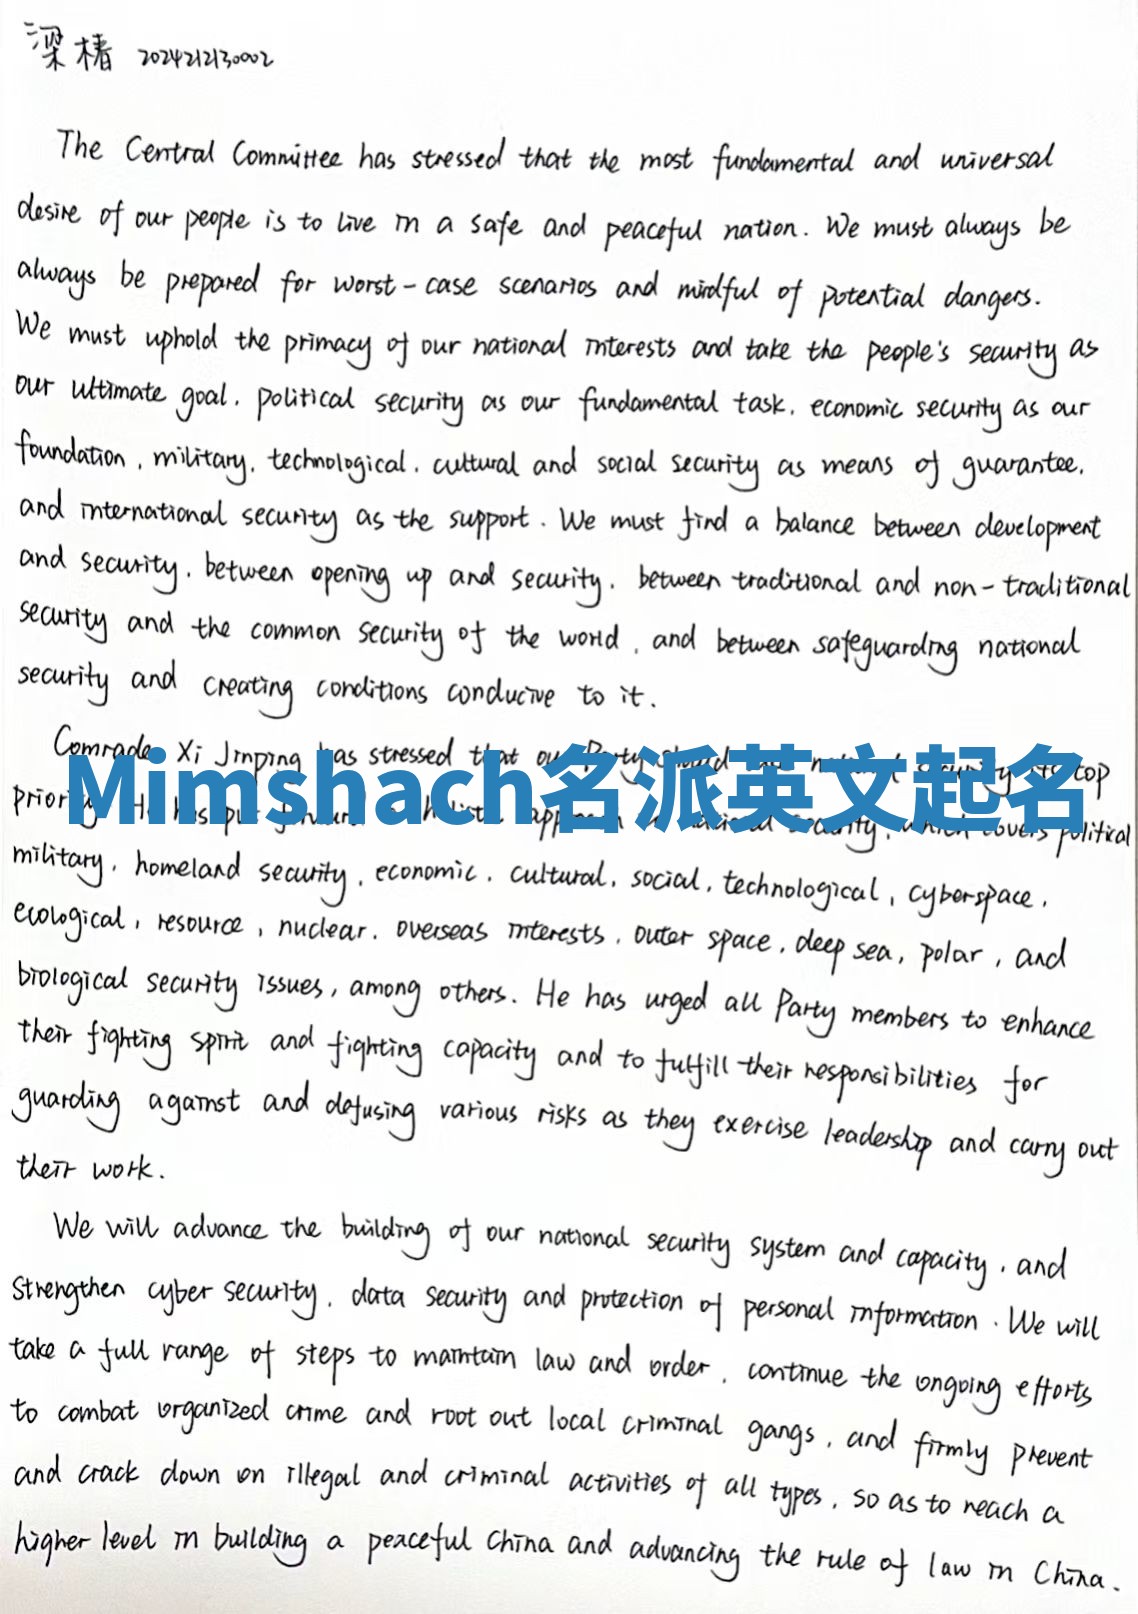 梁椿 2024212130002
The Central Committee has stressed that the most fundamental and universal
desire of our people is to live in a safe and peaceful nation. We must always be
always be prepared for worst-case scenarios and mindful of potential dangers.
We must uphold the primacy of our national interests and take the people's security as
our ultimate goal, political security as our fundamental task, economic security as our
foundation, military, technological, cultural and social security as means of guarantee,
and international security as the support. We must find a balance between development
and security, between opening up and security, between traditional and non-traditional
security and the common security of the world, and between safeguarding national
security and creating conditions conducive to it.
Comrade Xi Jinping has stressed that our Party top
Mimshach名派英文起名
priority covers political
military, homeland security, economic, cultural, social, technological, cyberspace,
ecological, resource, nuclear, overseas interests, outer space, deep sea, polar, and
biological security issues, among others. He has urged all Party members to enhance
their fighting spirit and fighting capacity and to fulfill their responsibilities for
guarding against and defusing various risks as they exercise leadership and carry out
their work.
We will advance the building of our national security system and capacity, and
strengthen cyber security, data security and protection of personal information. We will
take a full range of steps to maintain law and order, continue the ongoing efforts
to combat organized crime and root out local criminal gangs, and firmly prevent
and crack down on illegal and criminal activities of all types, so as to reach a
higher level in building a peaceful China and advancing the rule of law in China.